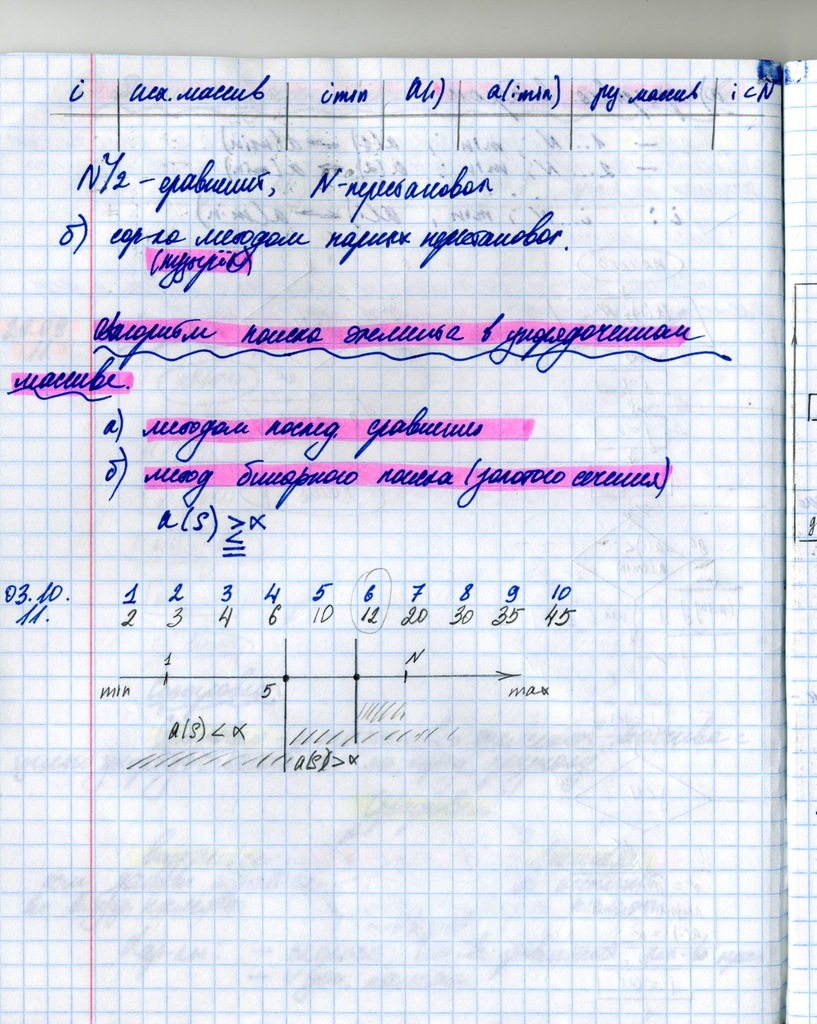 i исх. массив imin A(i) a(imin) ру. массив i<N
N²/2 - сравнений, N-перестановок
б) сор-ка методом парных перестановок.
(пузырёк)
Алгоритм поиска элемента в упорядоченном
массиве.
а) методом послед. сравнения
б) метод бинарного поиска (золотого сечения)
a(S) > α
<
=
03.10. 1 2 3 4 5 6 7 8 9 10
11. 2 3 4 6 10 12 20 30 35 45
1 N
min 5 max
a(S) < α
a(S) > α